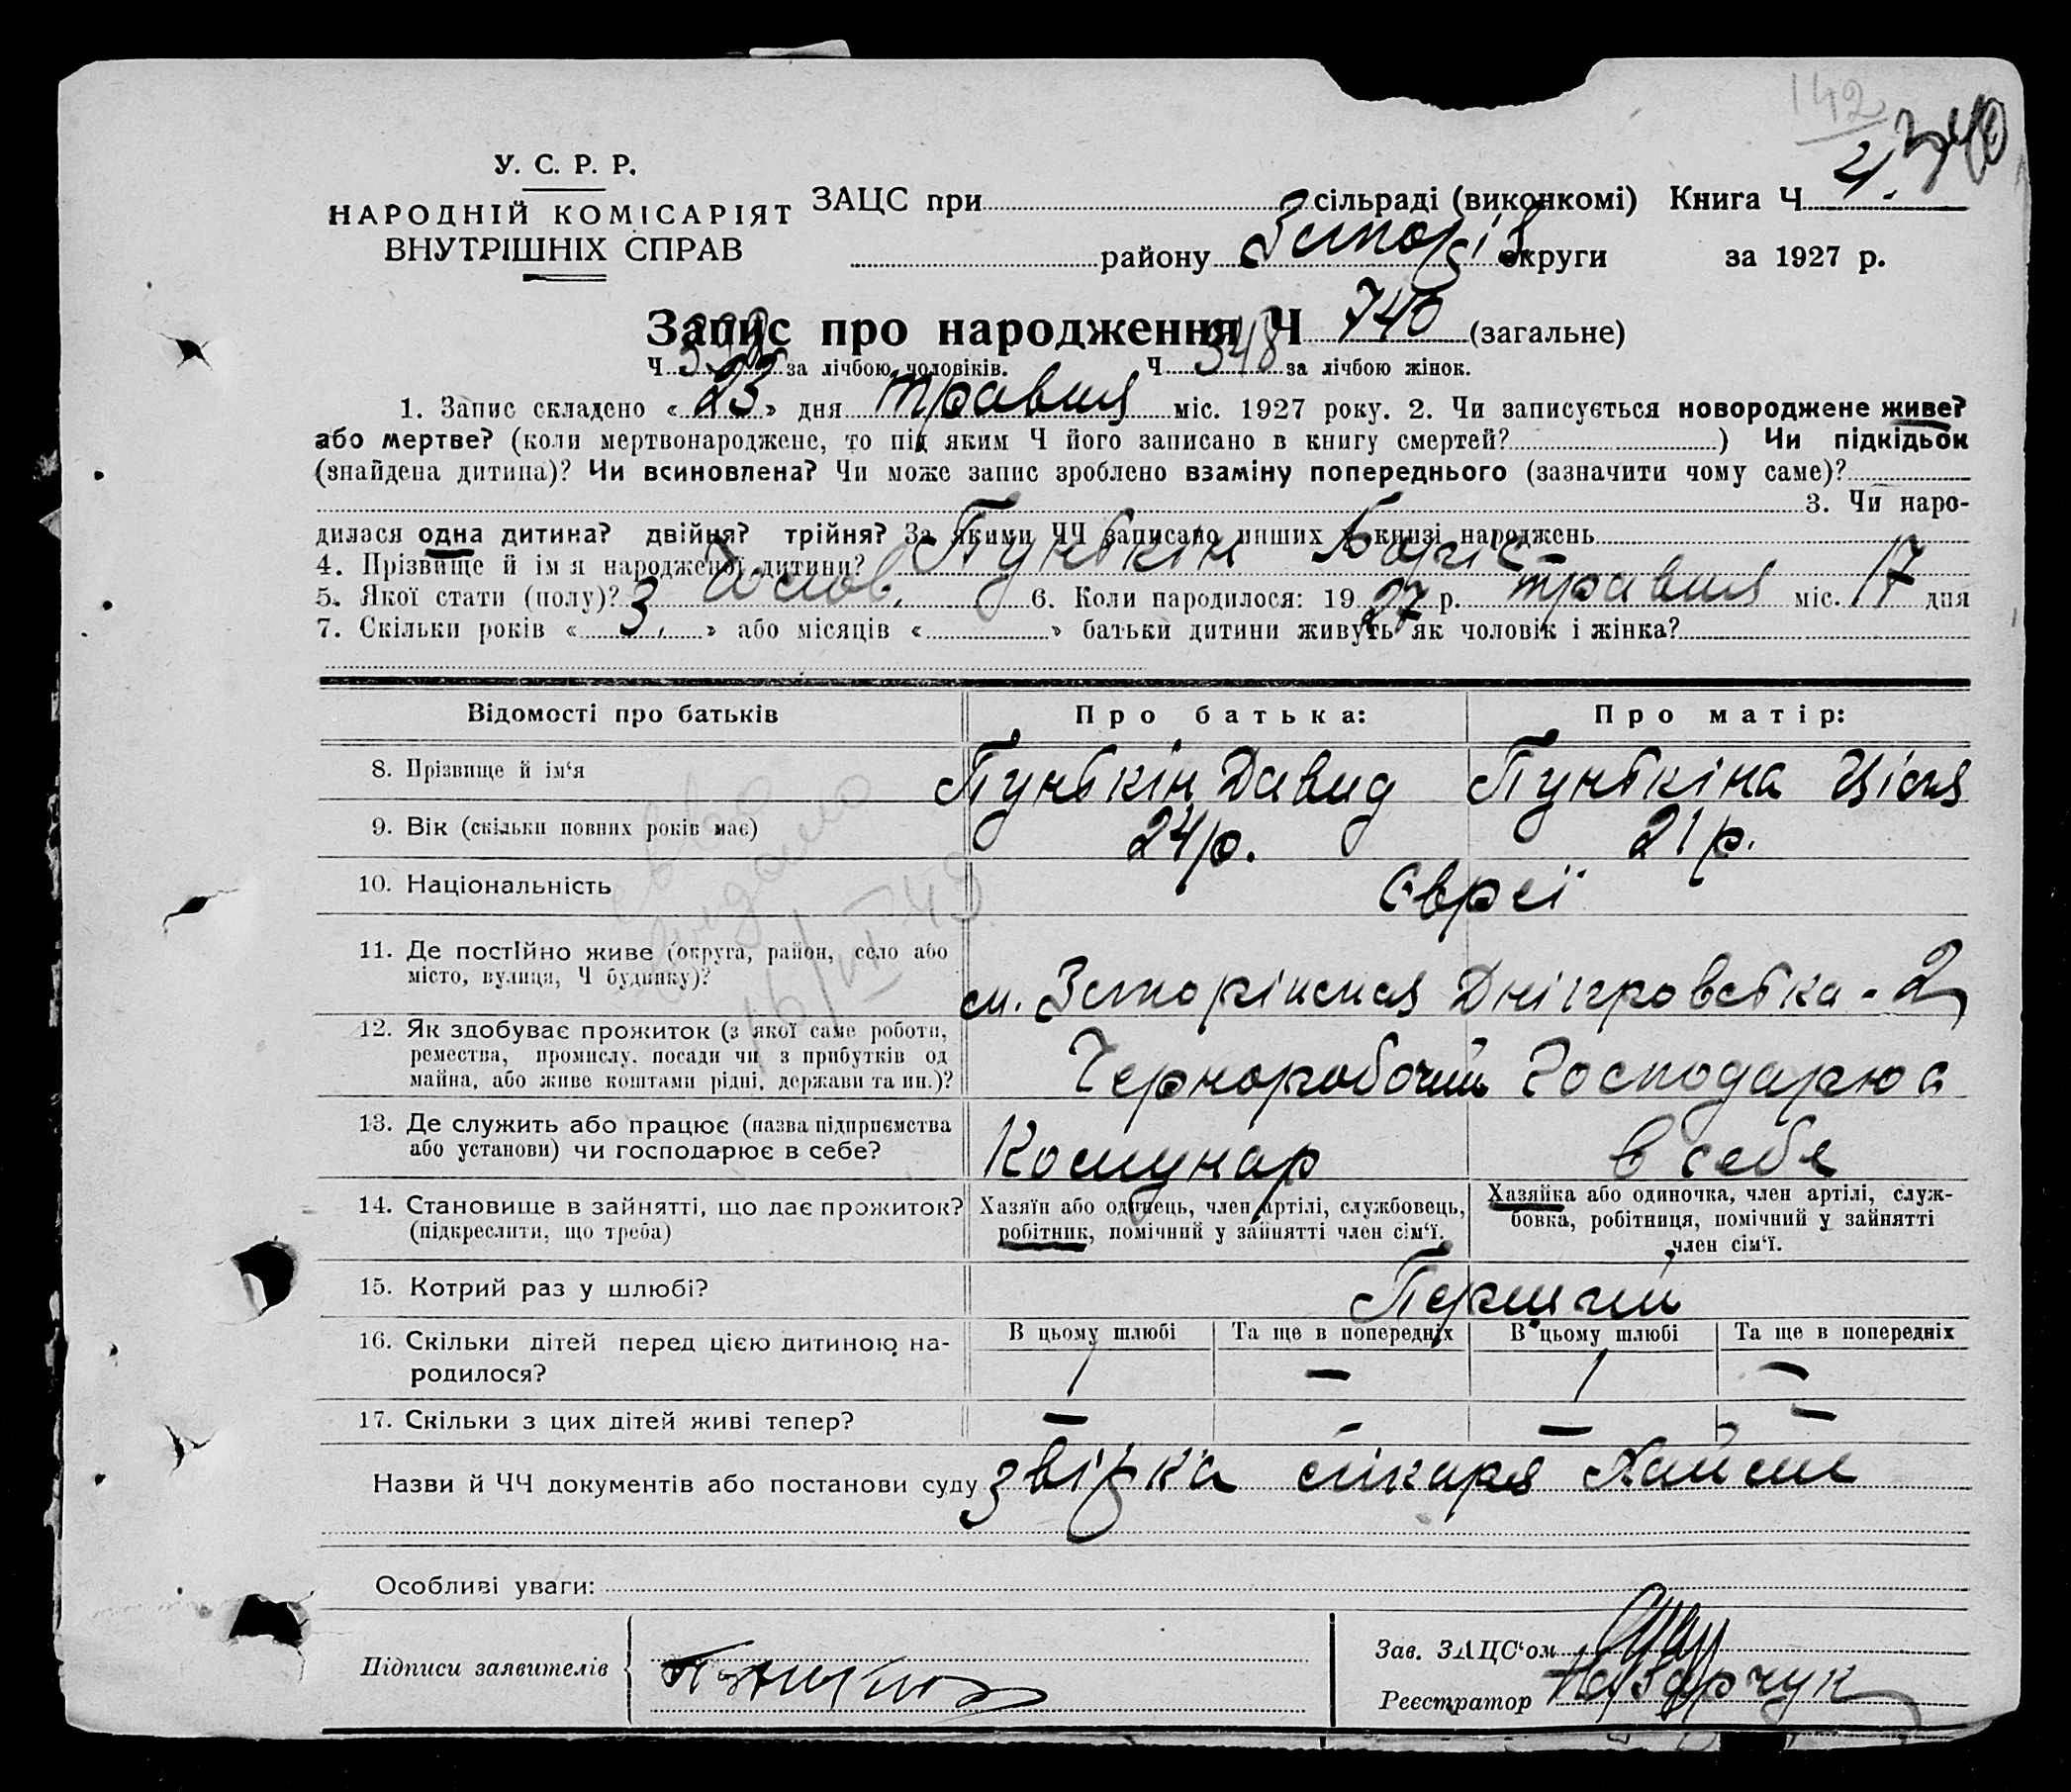 142
340
У. С. Р. Р.
НАРОДНІЙ КОМІСАРІЯТ
ВНУТРІШНІХ СПРАВ
ЗАЦС при сільраді (виконкомі) Книга Ч 4.
району Запоріз округи за 1927 р.
Запис про народження Ч 740 (загальне)
Ч за лічбою чоловіків. Ч 348 за лічбою жінок.
1. Запис складено « 23 » дня травня міс. 1927 року. 2. Чи записується новороджене живе?
або мертве? (коли мертвонароджене, то під яким Ч його записано в книгу смертей? ) Чи підкідьок
(знайдена дитина)? Чи всиновлена? Чи може запис зроблено взаміну попереднього (зазначити чому саме)?
3. Чи наро-
дилася одна дитина? двійня? трійня? За якими ЧЧ записано инших в книзі народжень
4. Прізвище й ім я народженої дитини? Пунькін Борис
5. Якої стати (полу)? Чолов. 6. Коли народилося: 19 27 р. травня міс. 17 дня
7. Скільки років « 3 » або місяців « » батьки дитини живуть як чоловік і жінка?
Відомості про батьків Про батька: Про матір:
8. Прізвище й ім'я Пунькін Давид Пунькіна Ціля
9. Вік (скільки повних років має) 24 р. 21 р.
10. Національність Євреї
11. Де постійно живе (округа, район, село або
місто, вулиця, Ч будинку)? м. Запоріжжя Дніпровська - 2
12. Як здобуває прожиток (з якої саме роботи,
ремества, промислу, посади чи з прибутків од
майна, або живе коштами рідні, держави та ин.)? Черноробочий Господарює
13. Де служить або працює (назва підприємства
або установи) чи господарює в себе? Комунар в себе
14. Становище в зайнятті, що дає прожиток?
(підкреслити, що треба)
Хазяїн або одинець, член артілі, службовець,
робітник, помічний у зайнятті член сім'ї.
Хазяйка або одиночка, член артілі, служ-
бовка, робітниця, помічний у зайнятті
член сім'ї.
15. Котрий раз у шлюбі? Перший
16. Скільки дітей перед цією дитиною на-
родилося?
В цьому шлюбі Та ще в попередніх В цьому шлюбі Та ще в попередніх
1 — 1 —
17. Скільки з цих дітей живі тепер? — — — —
Назви й ЧЧ документів або постанови суду звізка лікаря
Особливі уваги:
Підписи заявителів
Зав. ЗАЦС'ом
Реєстратор Назарчук